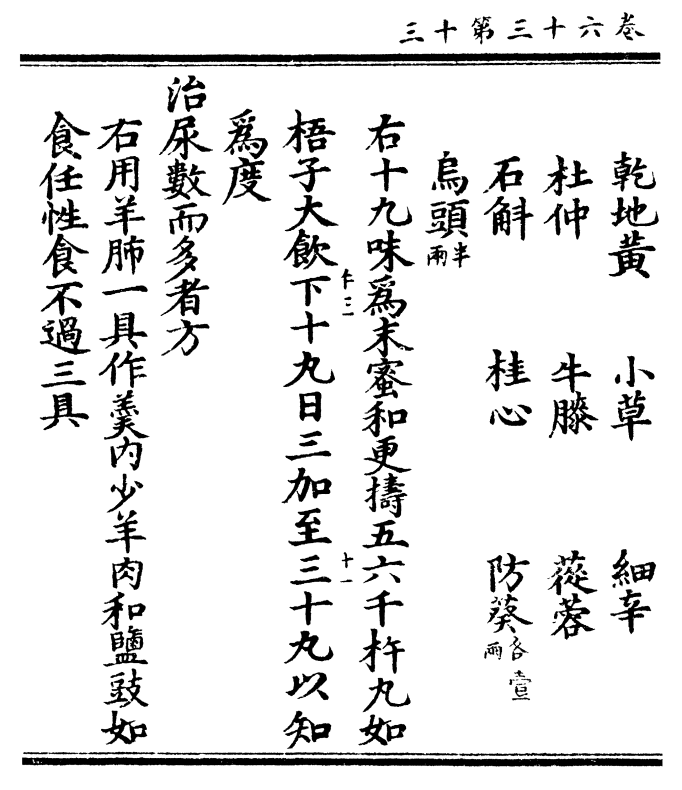 卷六十三第十三
乾地黃 小草 細辛
杜仲 牛膝 蓯蓉
石斛 桂心 防葵各壹兩
烏頭半兩
右十九味爲末蜜和更擣五六千杵丸如
十一
梧子大飲下十丸日三加至三十丸以知
爲度
治尿數而多者方
右用羊肺一具作羹內少羊肉和鹽豉如
食任性食不過三具